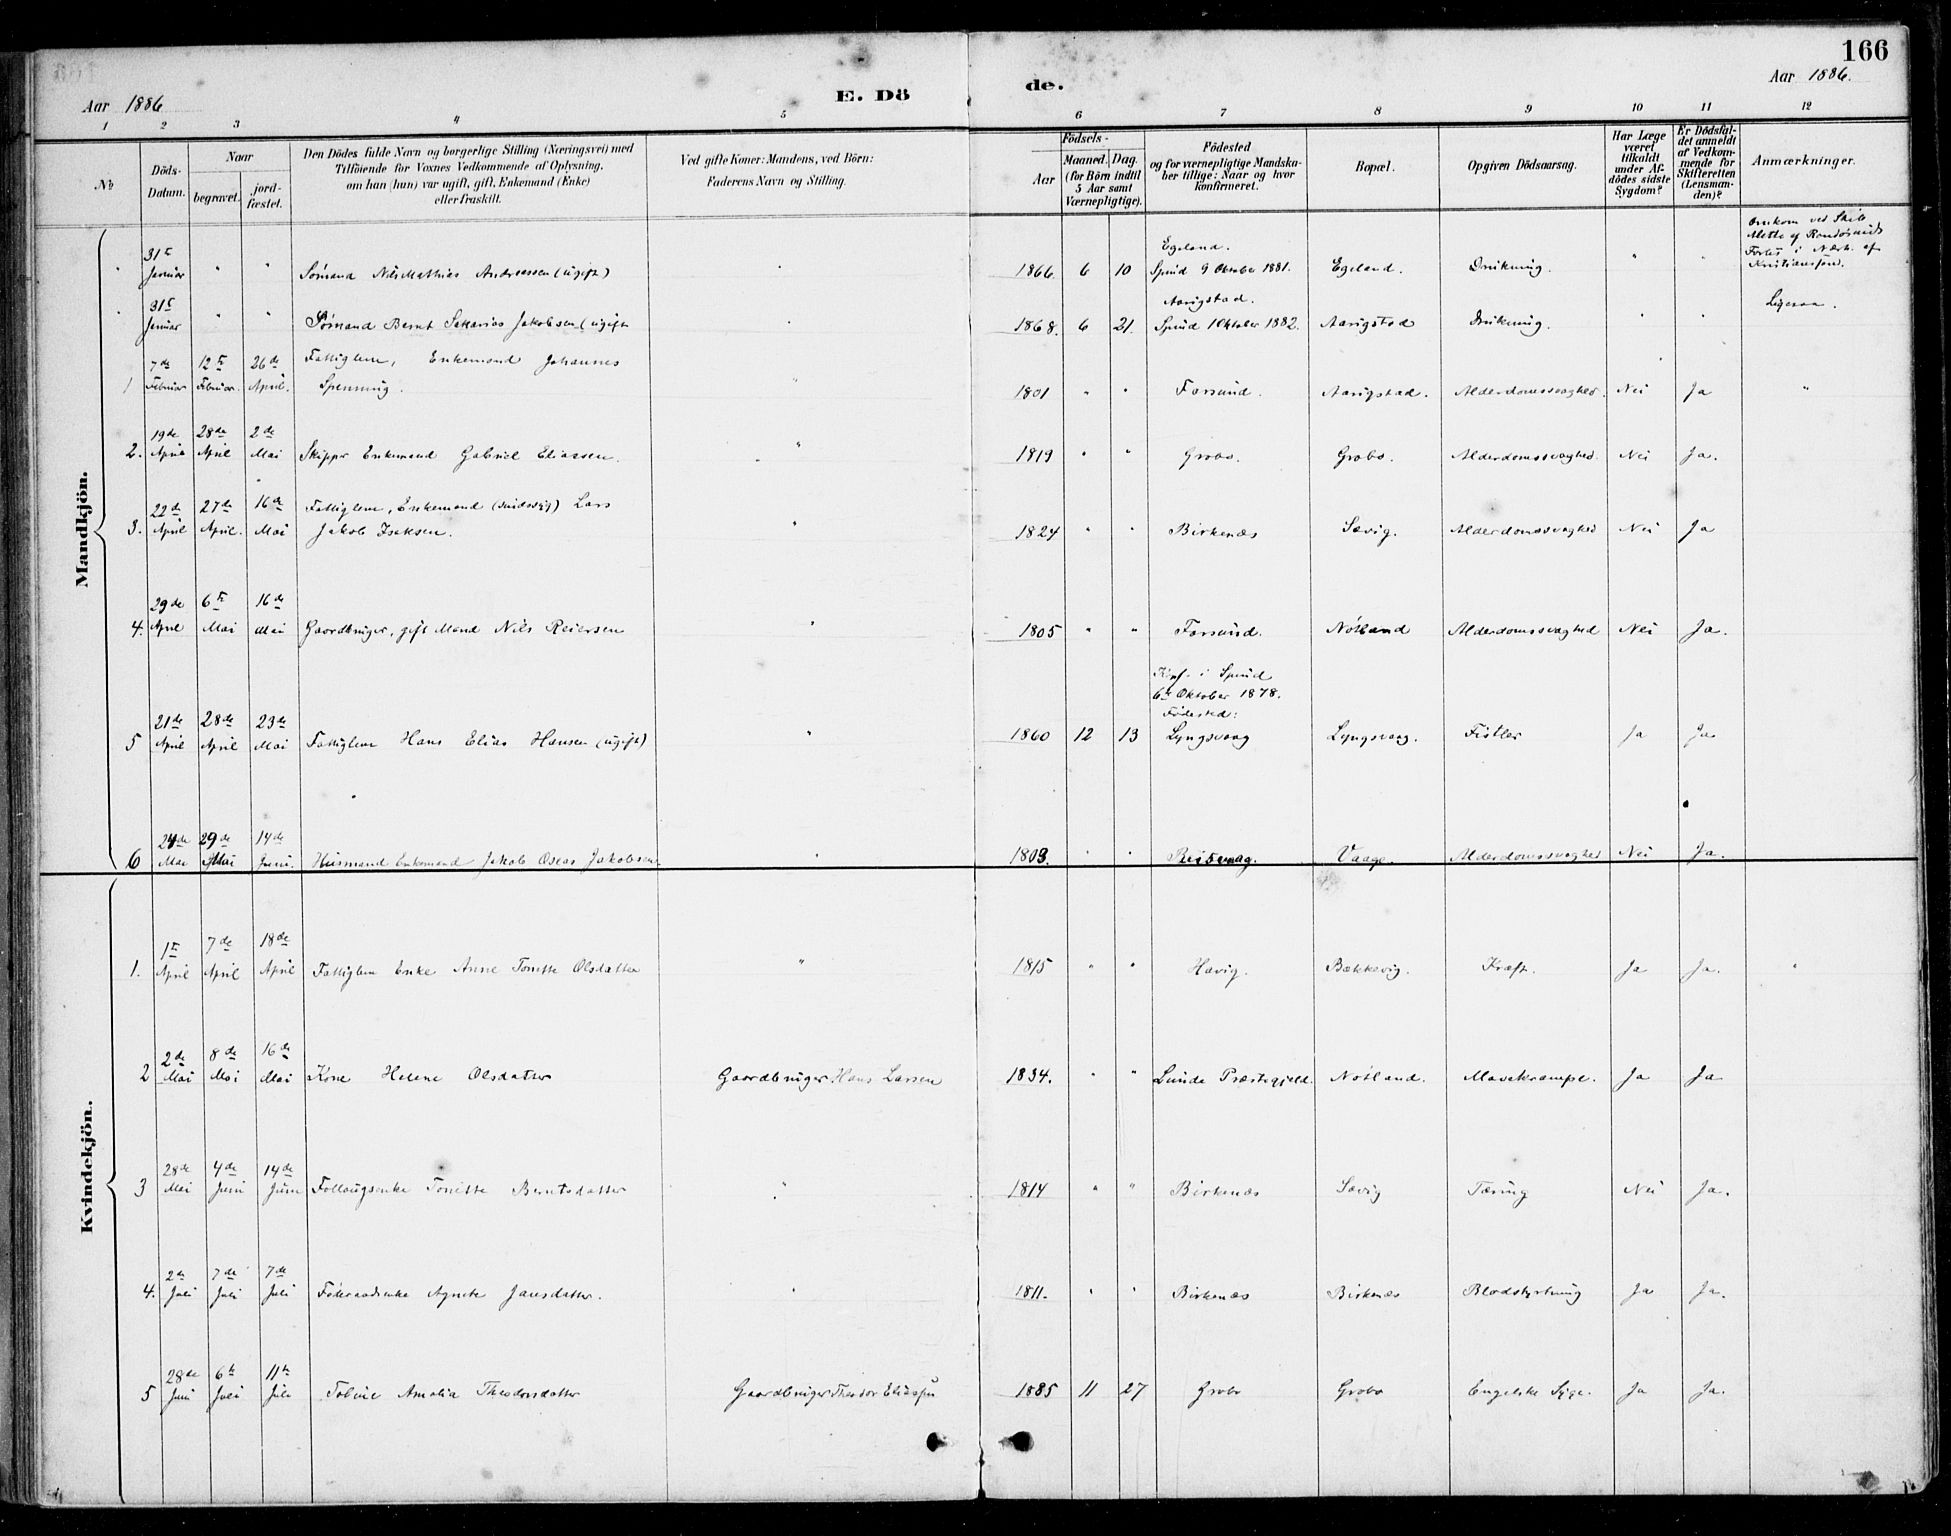 166
Aar 1886.
E. Dö
de.
Aar 1886.
1 2 3 4 5 6 7 8 9 10 11 12
No
Döds-Datum.
Naar
begravet.
jord-fæstet.
Den Dödes fulde Navn og borgerlige Stilling (Næringsvei) med
Tilföiende for Voxnes Vedkommende af Oplysning.
om han (hun) var ugift, gift, Enkemand (Enke)
eller fraskilt.
Ved gifte Koner: Mandens, ved Börn:
Faderens Navn og Stilling.
Födsels-
Aar
Maaned. Dag.
(for Börn indtil
5 Aar samt
Værnepligtige).
Födested
og for værnepligtige Mandska-
ber tillige: Naar og hvor
konfirmeret.
Bopæl.
Opgiven Dödsaarsag.
Har Læge
været
tilkaldt
under Af-
dödes sidste
Sygdom?
Er Dödsfal-
det anmeldt
af Vedkom-
mende for
Skifteretten
(Lensman-
den)?
Anmærkninger.
Mandkjön.
" 31te Januar " " Sømand Nils Mathias Andreassen (ugift) " 1866. 6 10 Egeland. Spind 9 Oktober 1881. Egeland. Drukning. " " Omkom ved Skib
af
i Nærh. af
Kristianssund.
" 31te Januar " " Sømand Bernt Sakarias Jakobsen (ugift " 1868. 6 21. Aarigstad. Spind 1 Oktober 1882. Aarigstad Drukning. " " Ligesaa.
1 7de Februar 12te Februar. 26de April. Fattiglem, Enkemand Johannes
Spenning. " 1801 " " Farsund. Aarigstad. Alderdomssvaghed. Nei Ja "
2. 19de April 28de April 2de Mai Skipper Enkemand Gabriel Eliassen. " 1819 " " Grobo. Grobo. Alderdomssvaghed. Nei Ja.
3. 22de April 27de April. 16de Mai Fattiglem, Enkemand Lars
Jakob Isaksen. " 1824 " " Birkenæs Sævig. Alderdomssvaghed Nei Ja
4. 29de April 6te Mai 16de Mai Gaardbruger, gift Mand Nils Reiersen " 1805 " " Farsund. Nøtland Alderdomssvaghed Nei Ja.
5 21de April 28de April 23de Mai Fattiglem Hans Elias Hansen (ugift) " 1860 12 13 Konf. i Spind
6te Oktober 1878.
Fødested:
Lyngsvaag Lyngsvaag. Fistler Ja Ja
6 24de Mai 29de Mai 14de Juni. Husmand Enkemand Jakob Oseas Jakobsen " 1803. " " Reisvaag. Vaage. Alderdomssvaghed Nei Ja.
Kvindekjön.
1. 1te April 7de April 18de April Fattiglem Enke Anne Tonette Olsdatter " 1815 " " Havig. Bækkevig. Kræft. Ja Ja. "
2 2de Mai 8de Mai 16de Mai Kone Helene Olsdatter Gaardbruger Hans Larsen 1834. " " Lunde Præstegjeld. Nøtland. Mavekrampe. Ja Ja
3 28de Mai 4de Juni 14de Juni Tonette Berntsdatter " 1814 " " Birkenæs Sævig Tæring Nei Ja.
4. 2de Juli 7de Juli 7de Juli Føderaadsenke Agnete Jansdatter. " 1811. " " Birkenæs Birkenæs Blodstyrtning Ja Ja.
5 28de Juni 6te Juli 11te Juli Toline Amalia Theodorsdatter Gaardbruger Theodor Eliassen 1885 11 27 Grobo Grobo Engelske Syge. Ja Ja.